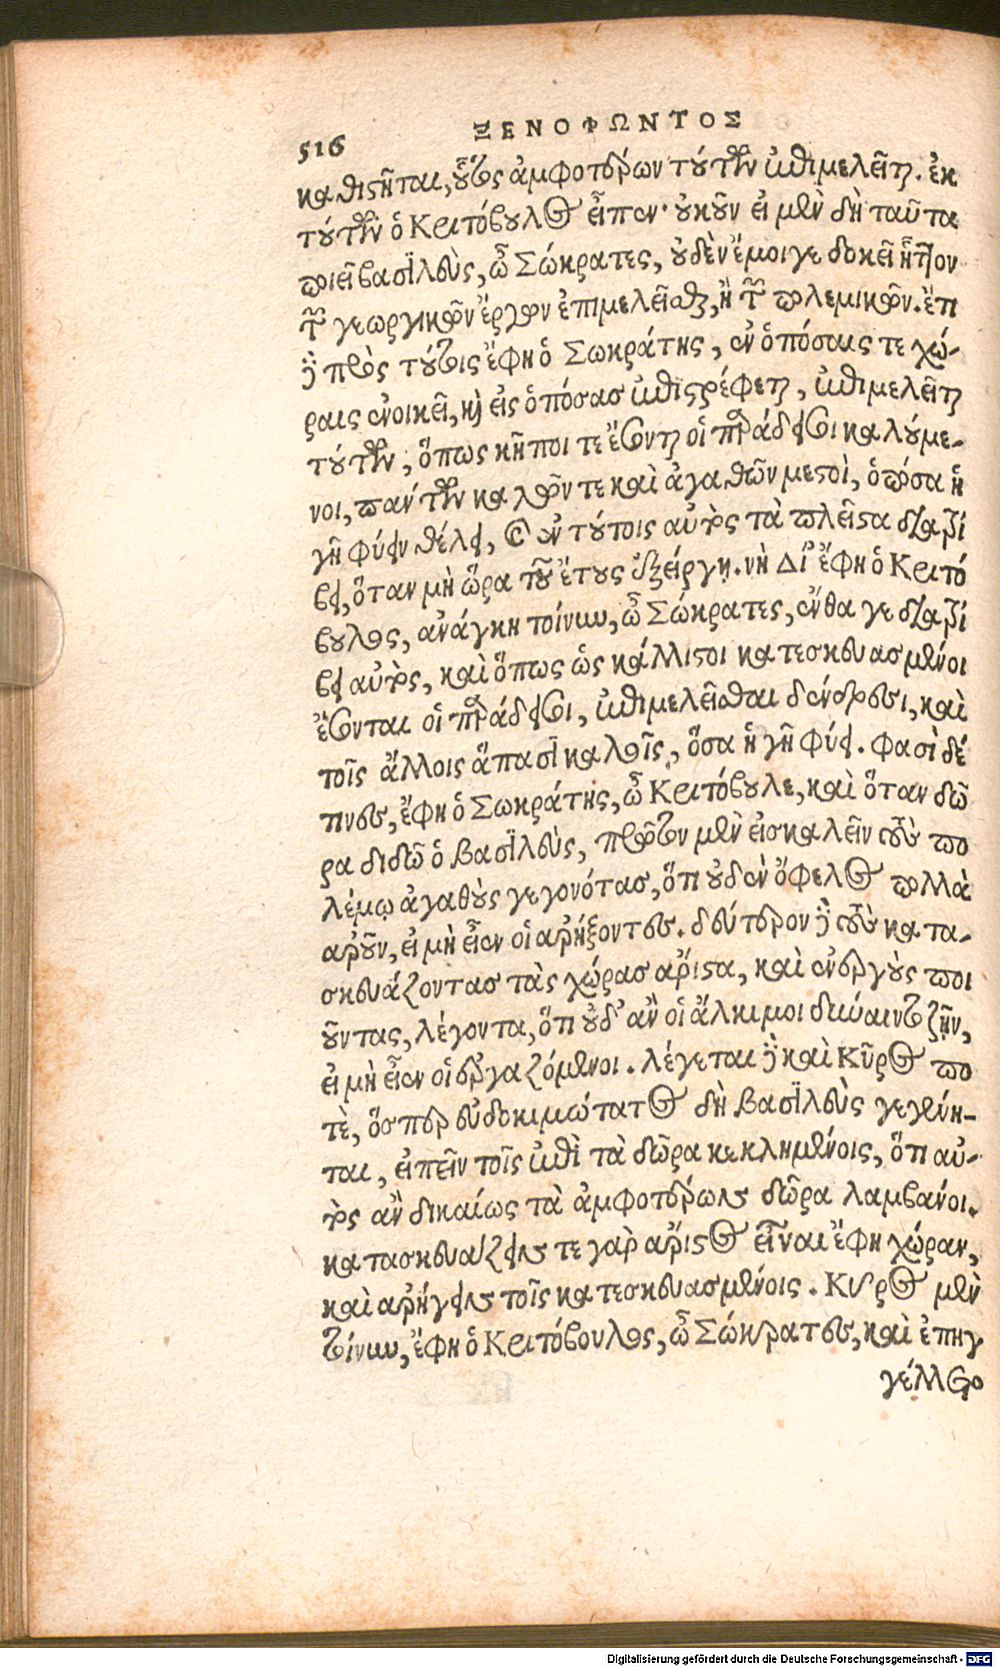 516
ΞΕΝΟΦΩΝΤΟΣ
καθιςῆται, οὗτος ἀμφοτέρων τούτων ἐπιμελεῖται. ἐκ
τούτων ὁ Κριτόβουλος εἶπεν· οὐκοῦν εἰ μὲν δὴ ταῦτα
ποιεῖ βασιλεὺς, ὦ Σώκρατες, οὐδὲν ἔμοιγε δοκεῖ ἧττον
τῶν γεωργικῶν ἔργων ἐπιμελεῖσθαι, ἢ τῶν πολεμικῶν. ἔτι
δὲ πρὸς τούτοις ἔφη ὁ Σωκράτης, ἐν ὁπόσαις τε χώ-
ραις ἐνοικεῖ, καὶ εἰς ὁπόσας ἐπιστρέφεται, ἐπιμελεῖται
τούτων, ὅπως κῆποι τε ἔσονται οἱ παράδεισοι καλούμε-
νοι, πάντων καλῶν τε καὶ ἀγαθῶν μεςοὶ, ὁπόσα ἡ
γῆ φύειν θέλει, καὶ ἐν τούτοις αὐτὸς τὰ πλεῖςα διατρί
βει, ὅταν μὴ ὥρα τοῦ ἔτους ἐξείργῃ. νὴ Δί' ἔφη ὁ Κριτό
βουλος, ἀνάγκη τοίνυν, ὦ Σώκρατες, ἔνθα γε διατρί
βει αὐτὸς, καὶ ὅπως ὡς κάλλιςοι κατεσκευασμένοι
ἔσονται οἱ παράδεισοι, ἐπιμελεῖσθαι δένδρεσι, καὶ
τοῖς ἄλλοις ἅπασι καλοῖς, ὅσα ἡ γῆ φύει. φασὶ δέ
τινες, ἔφη ὁ Σωκράτης, ὦ Κριτόβουλε, καὶ ὅταν δῶ
ρα διδῶ ὁ βασιλεὺς, πρῶτον μὲν εἰσκαλεῖν τοὺς πο
λέμῳ ἀγαθοὺς γεγονότας, ὅτι οὐδὲν ὄφελος πολλὰ
ἀροῦν, εἰ μὴ εἶεν οἱ ἀρήξοντες. δεύτερον δὲ τοὺς κατα-
σκευάζοντας τὰς χώρας ἄριςα, καὶ ἐνεργοὺς ποι
οῦντας, λέγοντα, ὅτι οὐδ' ἂν οἱ ἄλκιμοι δύναιντο ζῆν,
εἰ μὴ εἶεν οἱ ἐργαζόμενοι. λέγεται δὲ καὶ Κῦρος πο
τὲ, ὅσπερ εὐδοκιμώτατος δὴ βασιλεὺς γεγένη-
ται, εἰπεῖν τοῖς ἐπὶ τὰ δῶρα κεκλημένοις, ὅτι αὐ-
τὸς ἂν δικαίως τὰ ἀμφοτέρων δῶρα λαμβάνοι.
κατασκευάζειν τε γὰρ ἄριςος εἶναι ἔφη χώραν,
καὶ ἀρήγειν τοῖς κατεσκευασμένοις. Κῦρος μὲν
τοίνυν, ἔφη ὁ Κριτόβουλος, ὦ Σώκρατες, καὶ ἐπηγ
γέλλετο
Digitalisierung gefördert durch die Deutsche Forschungsgemeinschaft - DFG